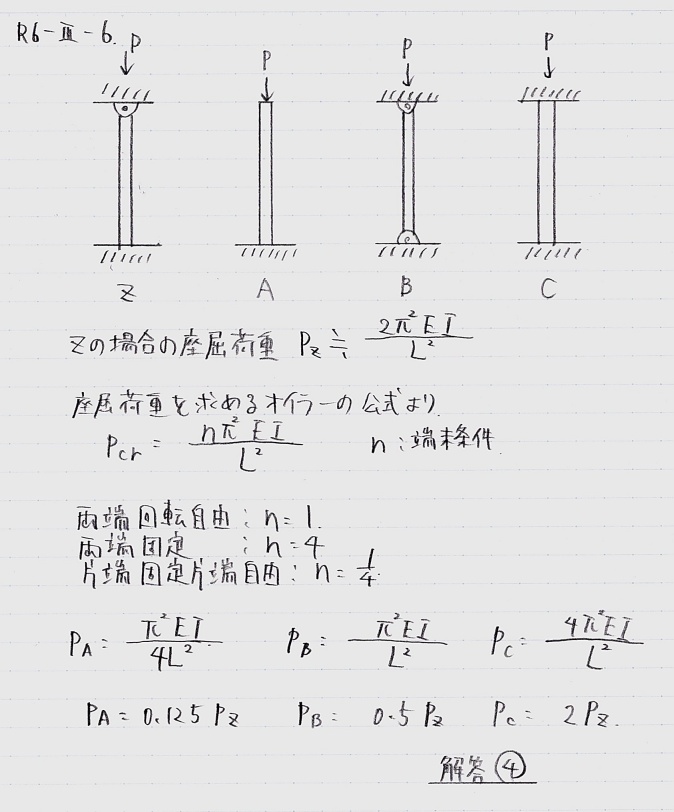 R6-Ⅲ-6.
P P P P
Z A B C
Zの場合の座屈荷重 Pz ≒ 2π²EI / L²
座屈荷重を求めるオイラーの公式より
Pcr = nπ²EI / L² n:端末条件
両端回転自由:n=1.
両端固定 :n=4
片端固定片端自由:n=1/4.
PA= π²EI / 4L² PB= π²EI / L² PC= 4π²EI / L²
PA=0.125Pz PB= 0.5Pz Pc= 2Pz.
解答④